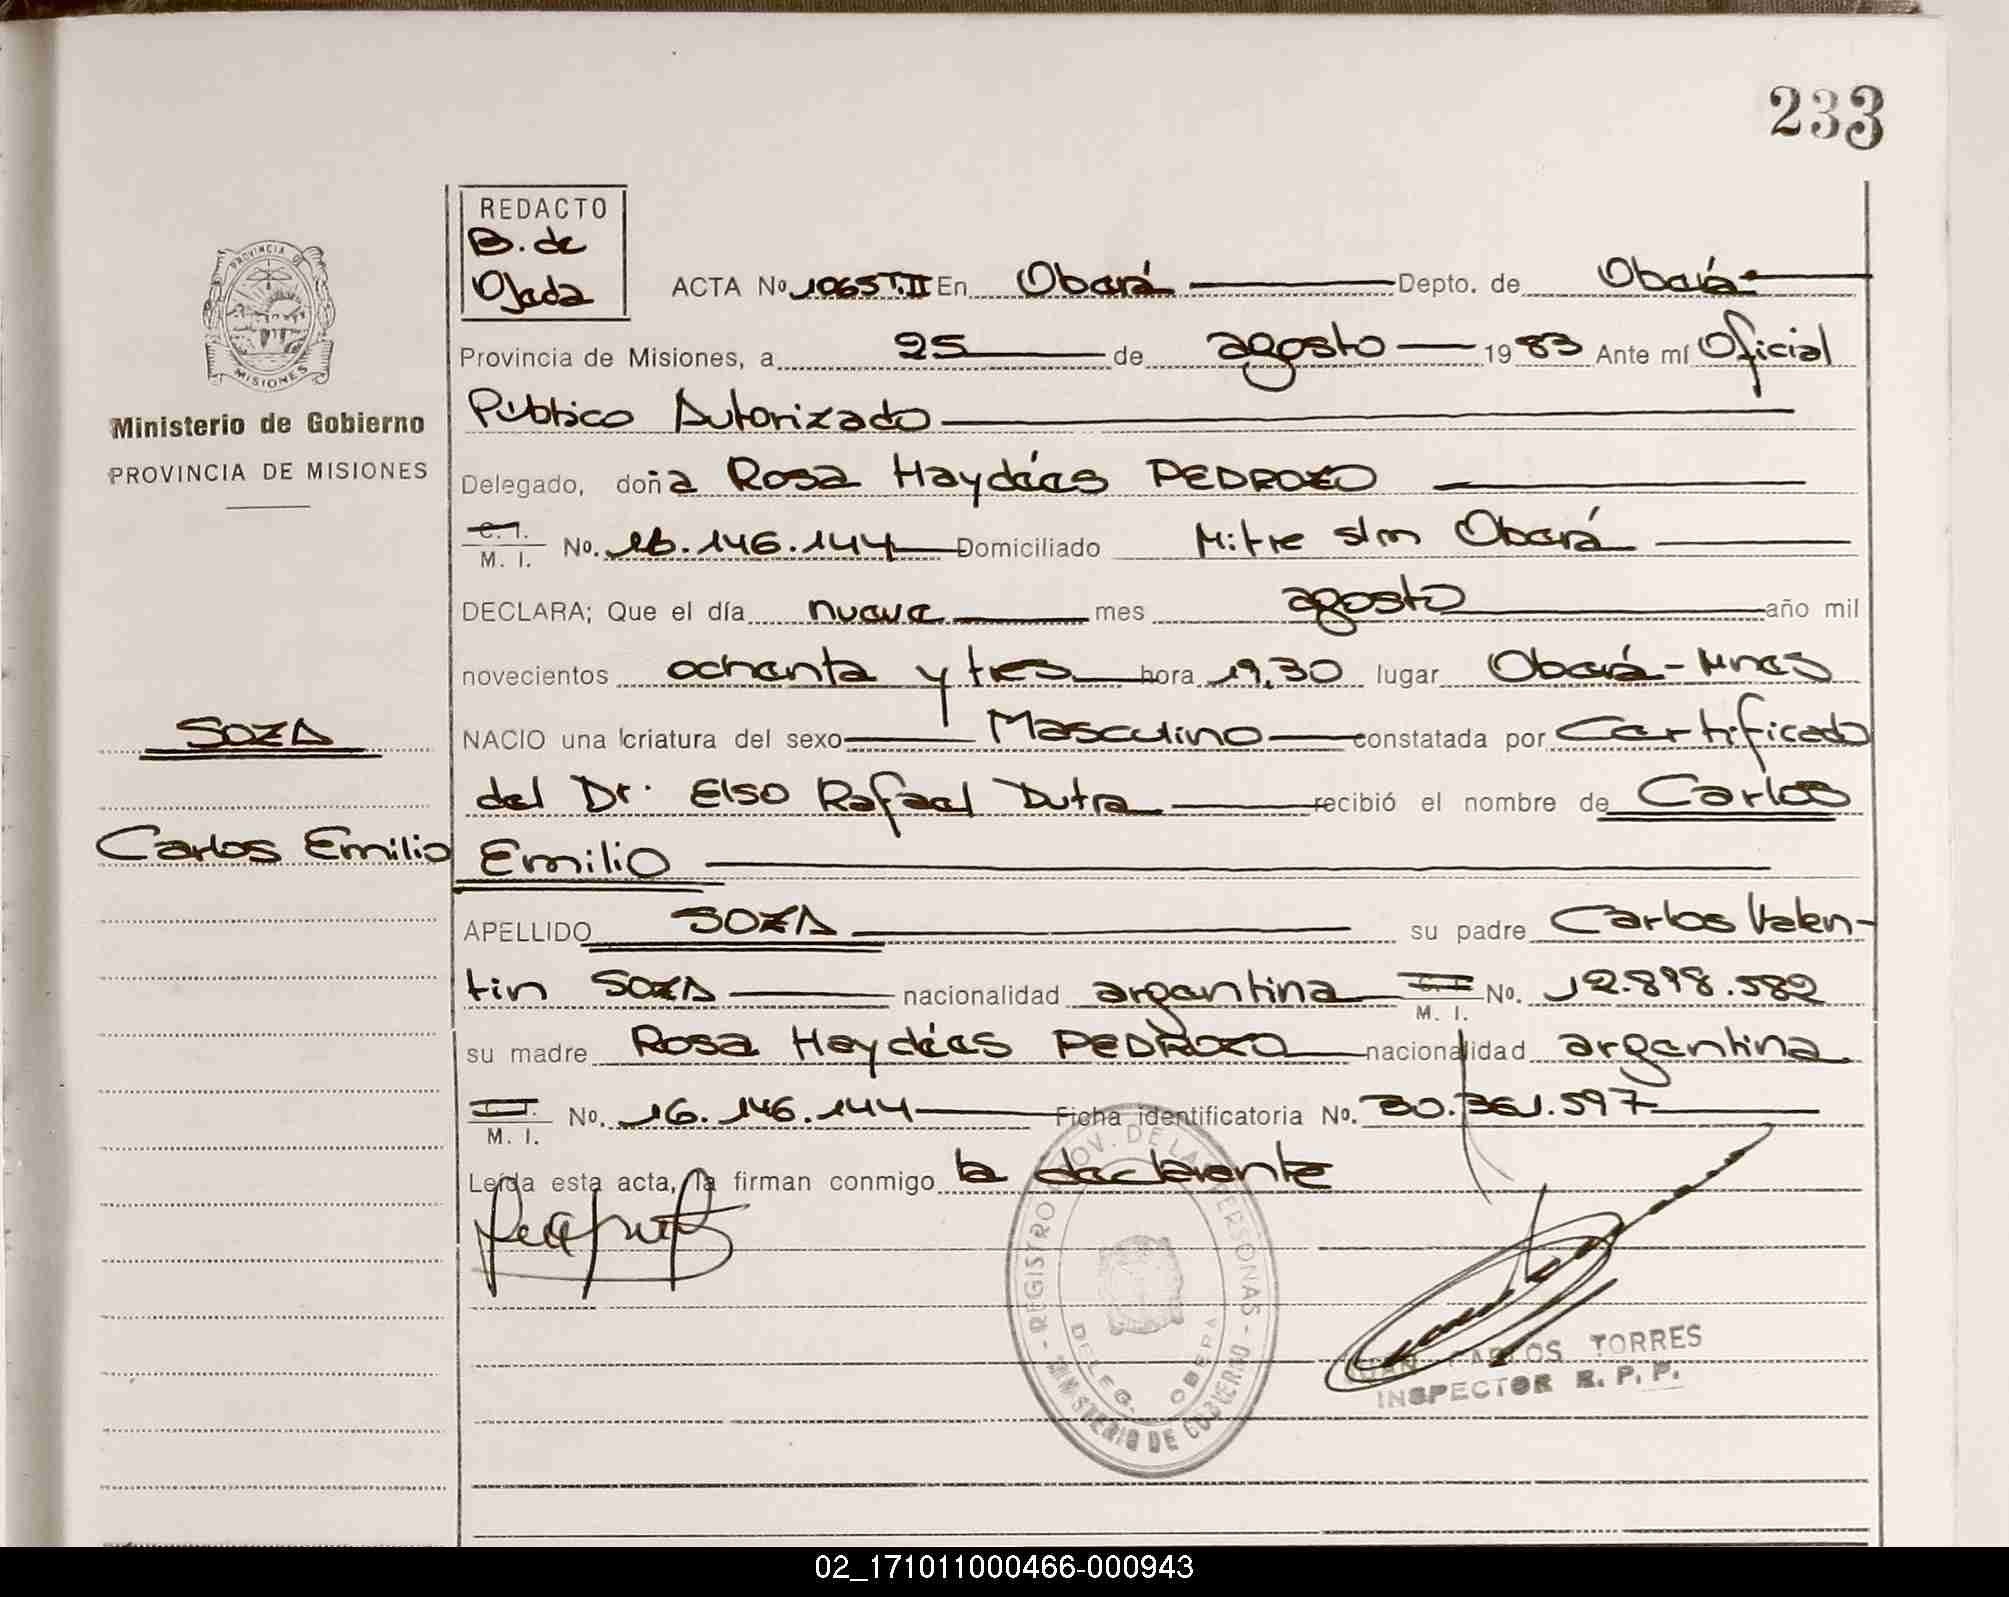 233
REDACTO
B. de
Ojeda
PROVINCIA DE
MISIONES
Ministerio de Gobierno
PROVINCIA DE MISIONES
ACTA No. 1065 T.II En Oberá Depto. de Oberá
Provincia de Misiones, a 25 de agosto 1983 Ante mí Oficial
Público Autorizado
Delegado, doña Rosa Haydées PEDROZO
C. I.
M. I. No. 16.146.144 Domiciliado Mitre s/n Oberá
DECLARA; Que el día nueve mes agosto año mil
novecientos ochenta y tres hora 19,30 lugar Oberá-Mnes
SOZA
NACIO una criatura del sexo Masculino constatada por Certificado
del Dr. Elso Rafael Dutra recibió el nombre de Carlos
Carlos Emilio
Emilio
APELLIDO SOZA su padre Carlos Valen-
tin SOZA nacionalidad argentina C. I. M. I. No. 12.898.582
su madre Rosa Haydées PEDROZO nacionalidad argentina
C. I.
M. I. No. 16.146.144 Ficha identificatoria No. 30.361.597
Leída esta acta, la firman conmigo la declarante
REGISTRO PROV. DE LAS PERSONAS
MINISTERIO DE GOBIERNO
DELEG. OBERA
JUAN CARLOS TORRES
INSPECTOR R. P. P.
02_171011000466-000943